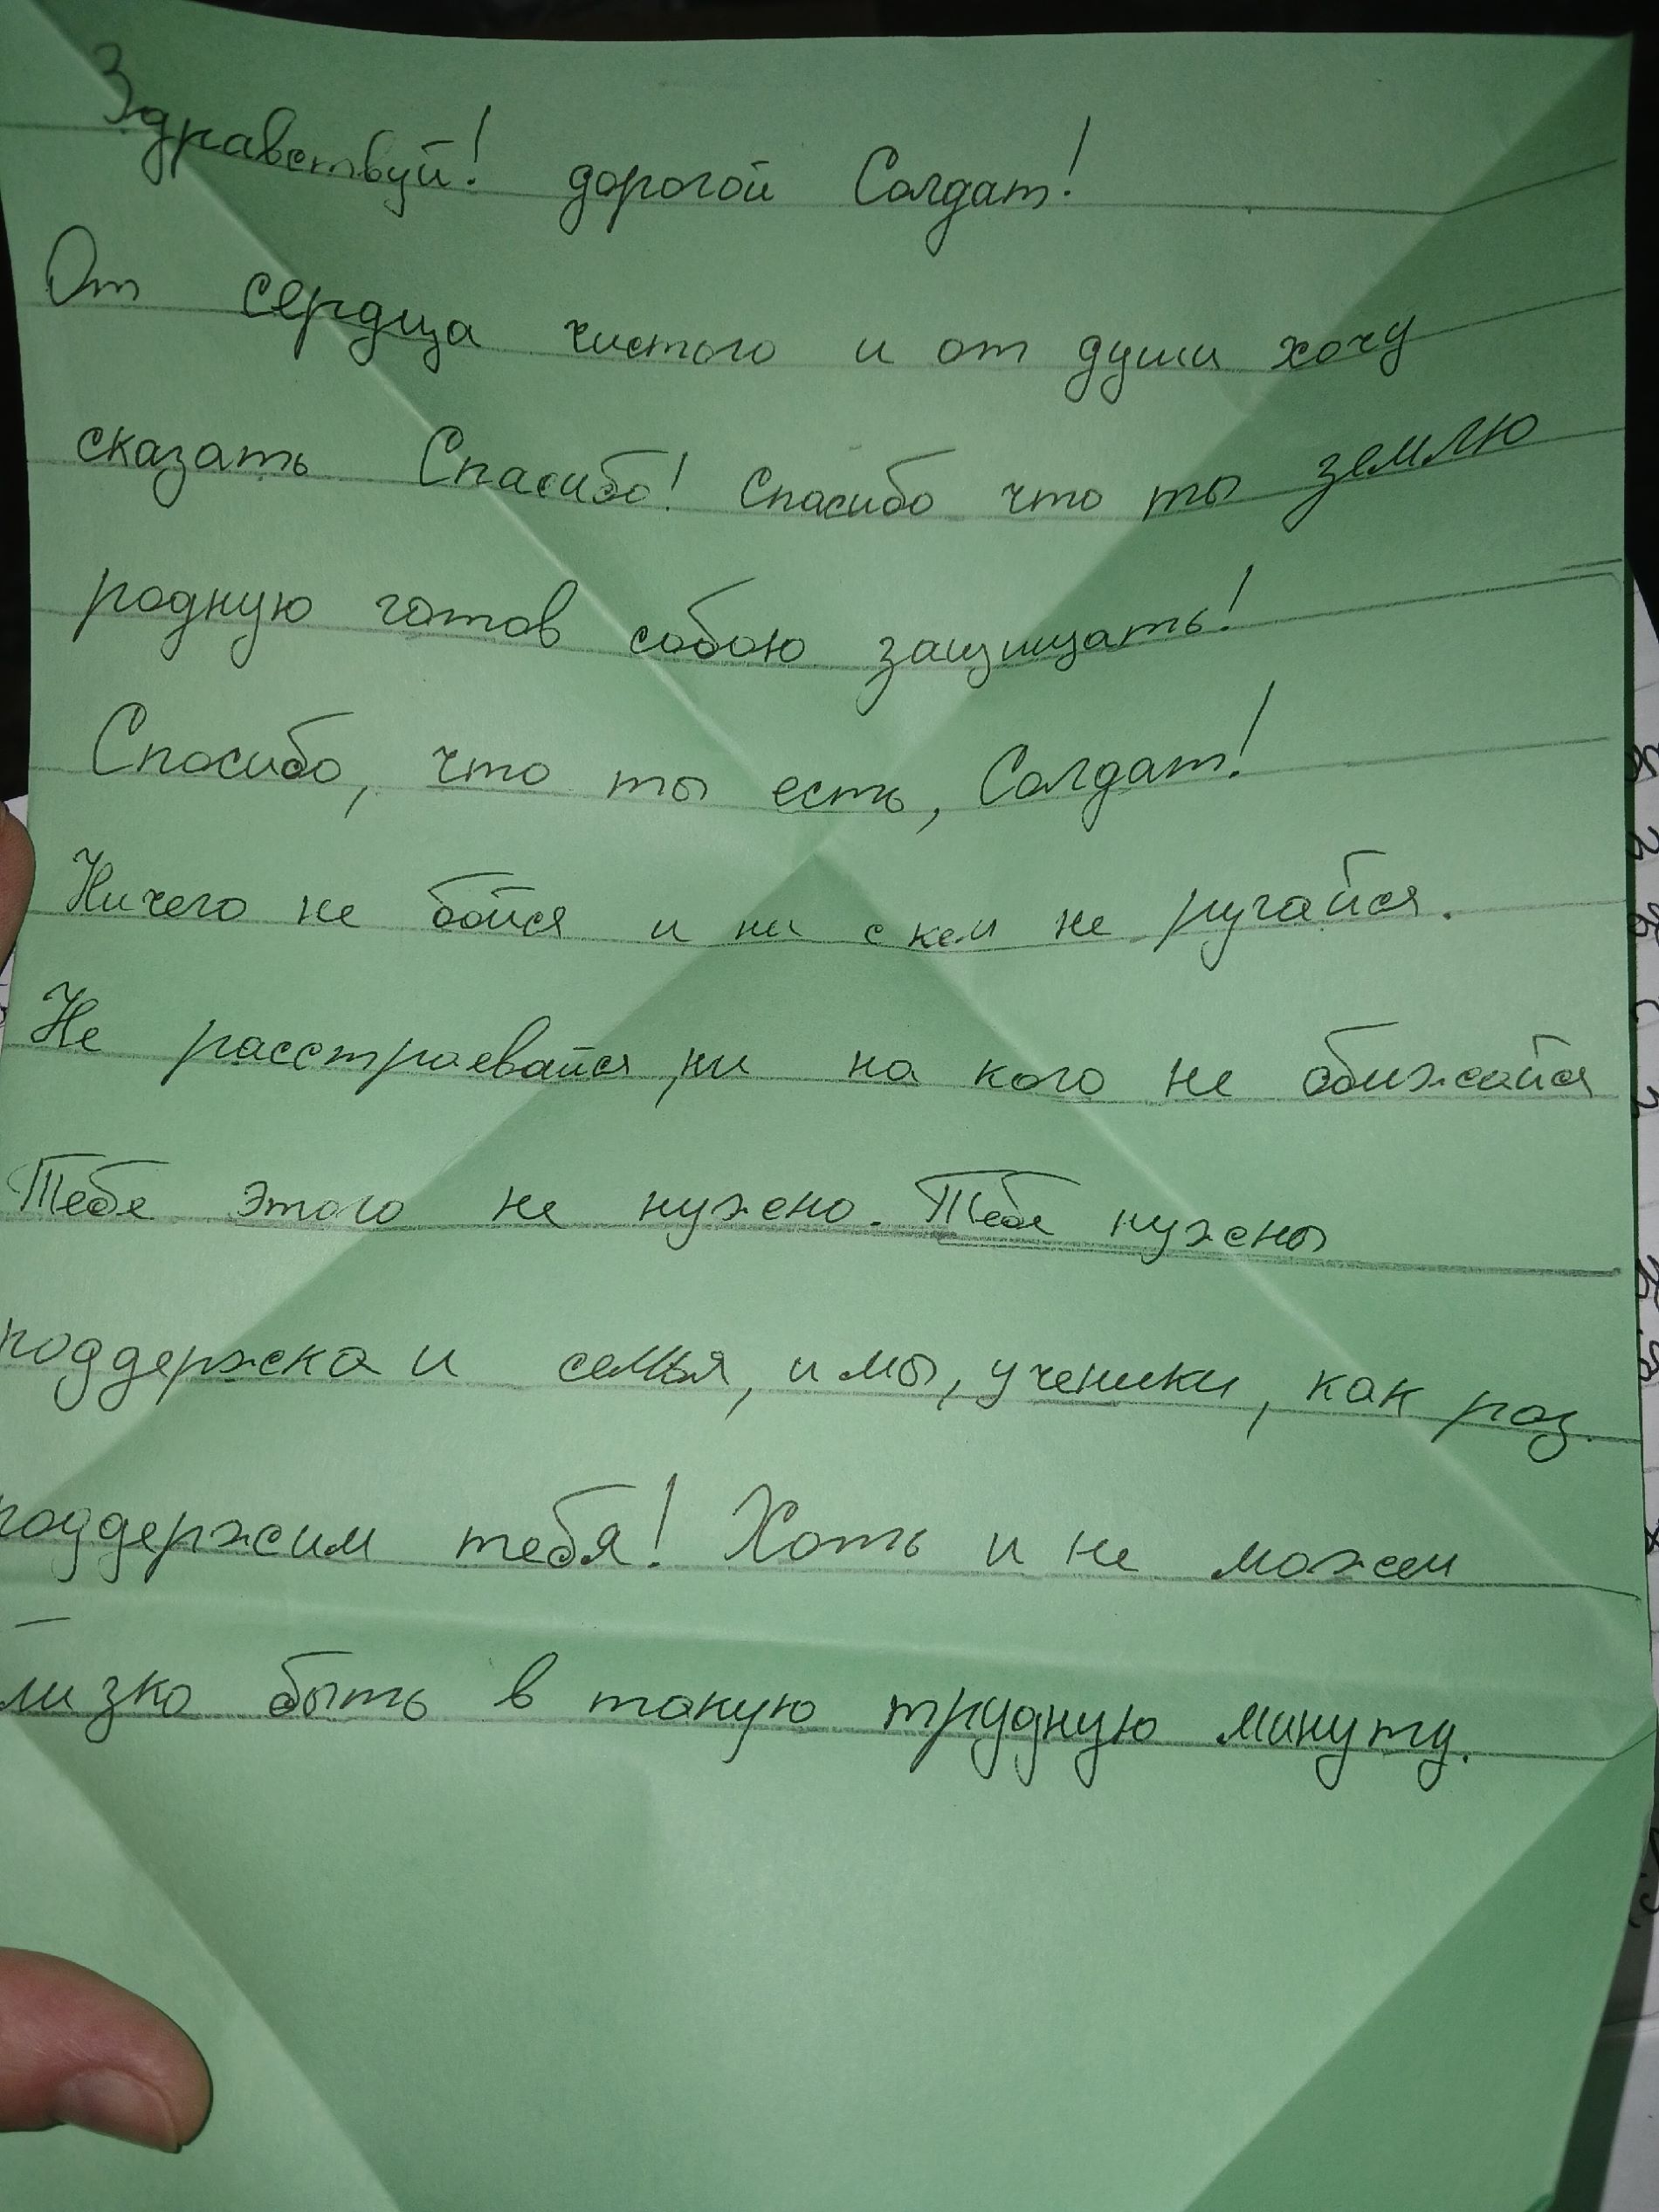 Здравствуй! дорогой Солдат!
От сердца чистого и от души хочу
сказать Спасибо! Спасибо что ты землю
родную готов собою защищать!
Спасибо, что ты есть, Солдат!
Ничего не бойся и ни с кем не ругайся.
Не расстраевайся, ни на кого не обижайся
Тебе этого не нужно. Тебе нужны
поддержка и семья, и мы, ученики, как раз.
поддержим тебя! Хоть и не можем
лизко быть в такую трудную минуту.